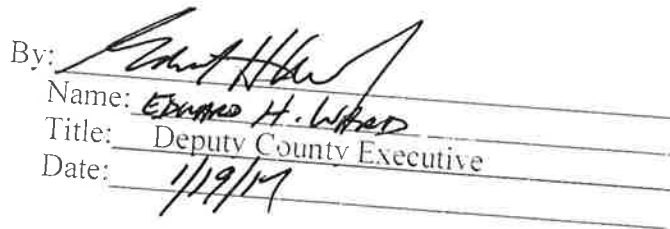 By:
Name: EDWARD H. WARD
Title: Deputy County Executive
Date: 1/19/17